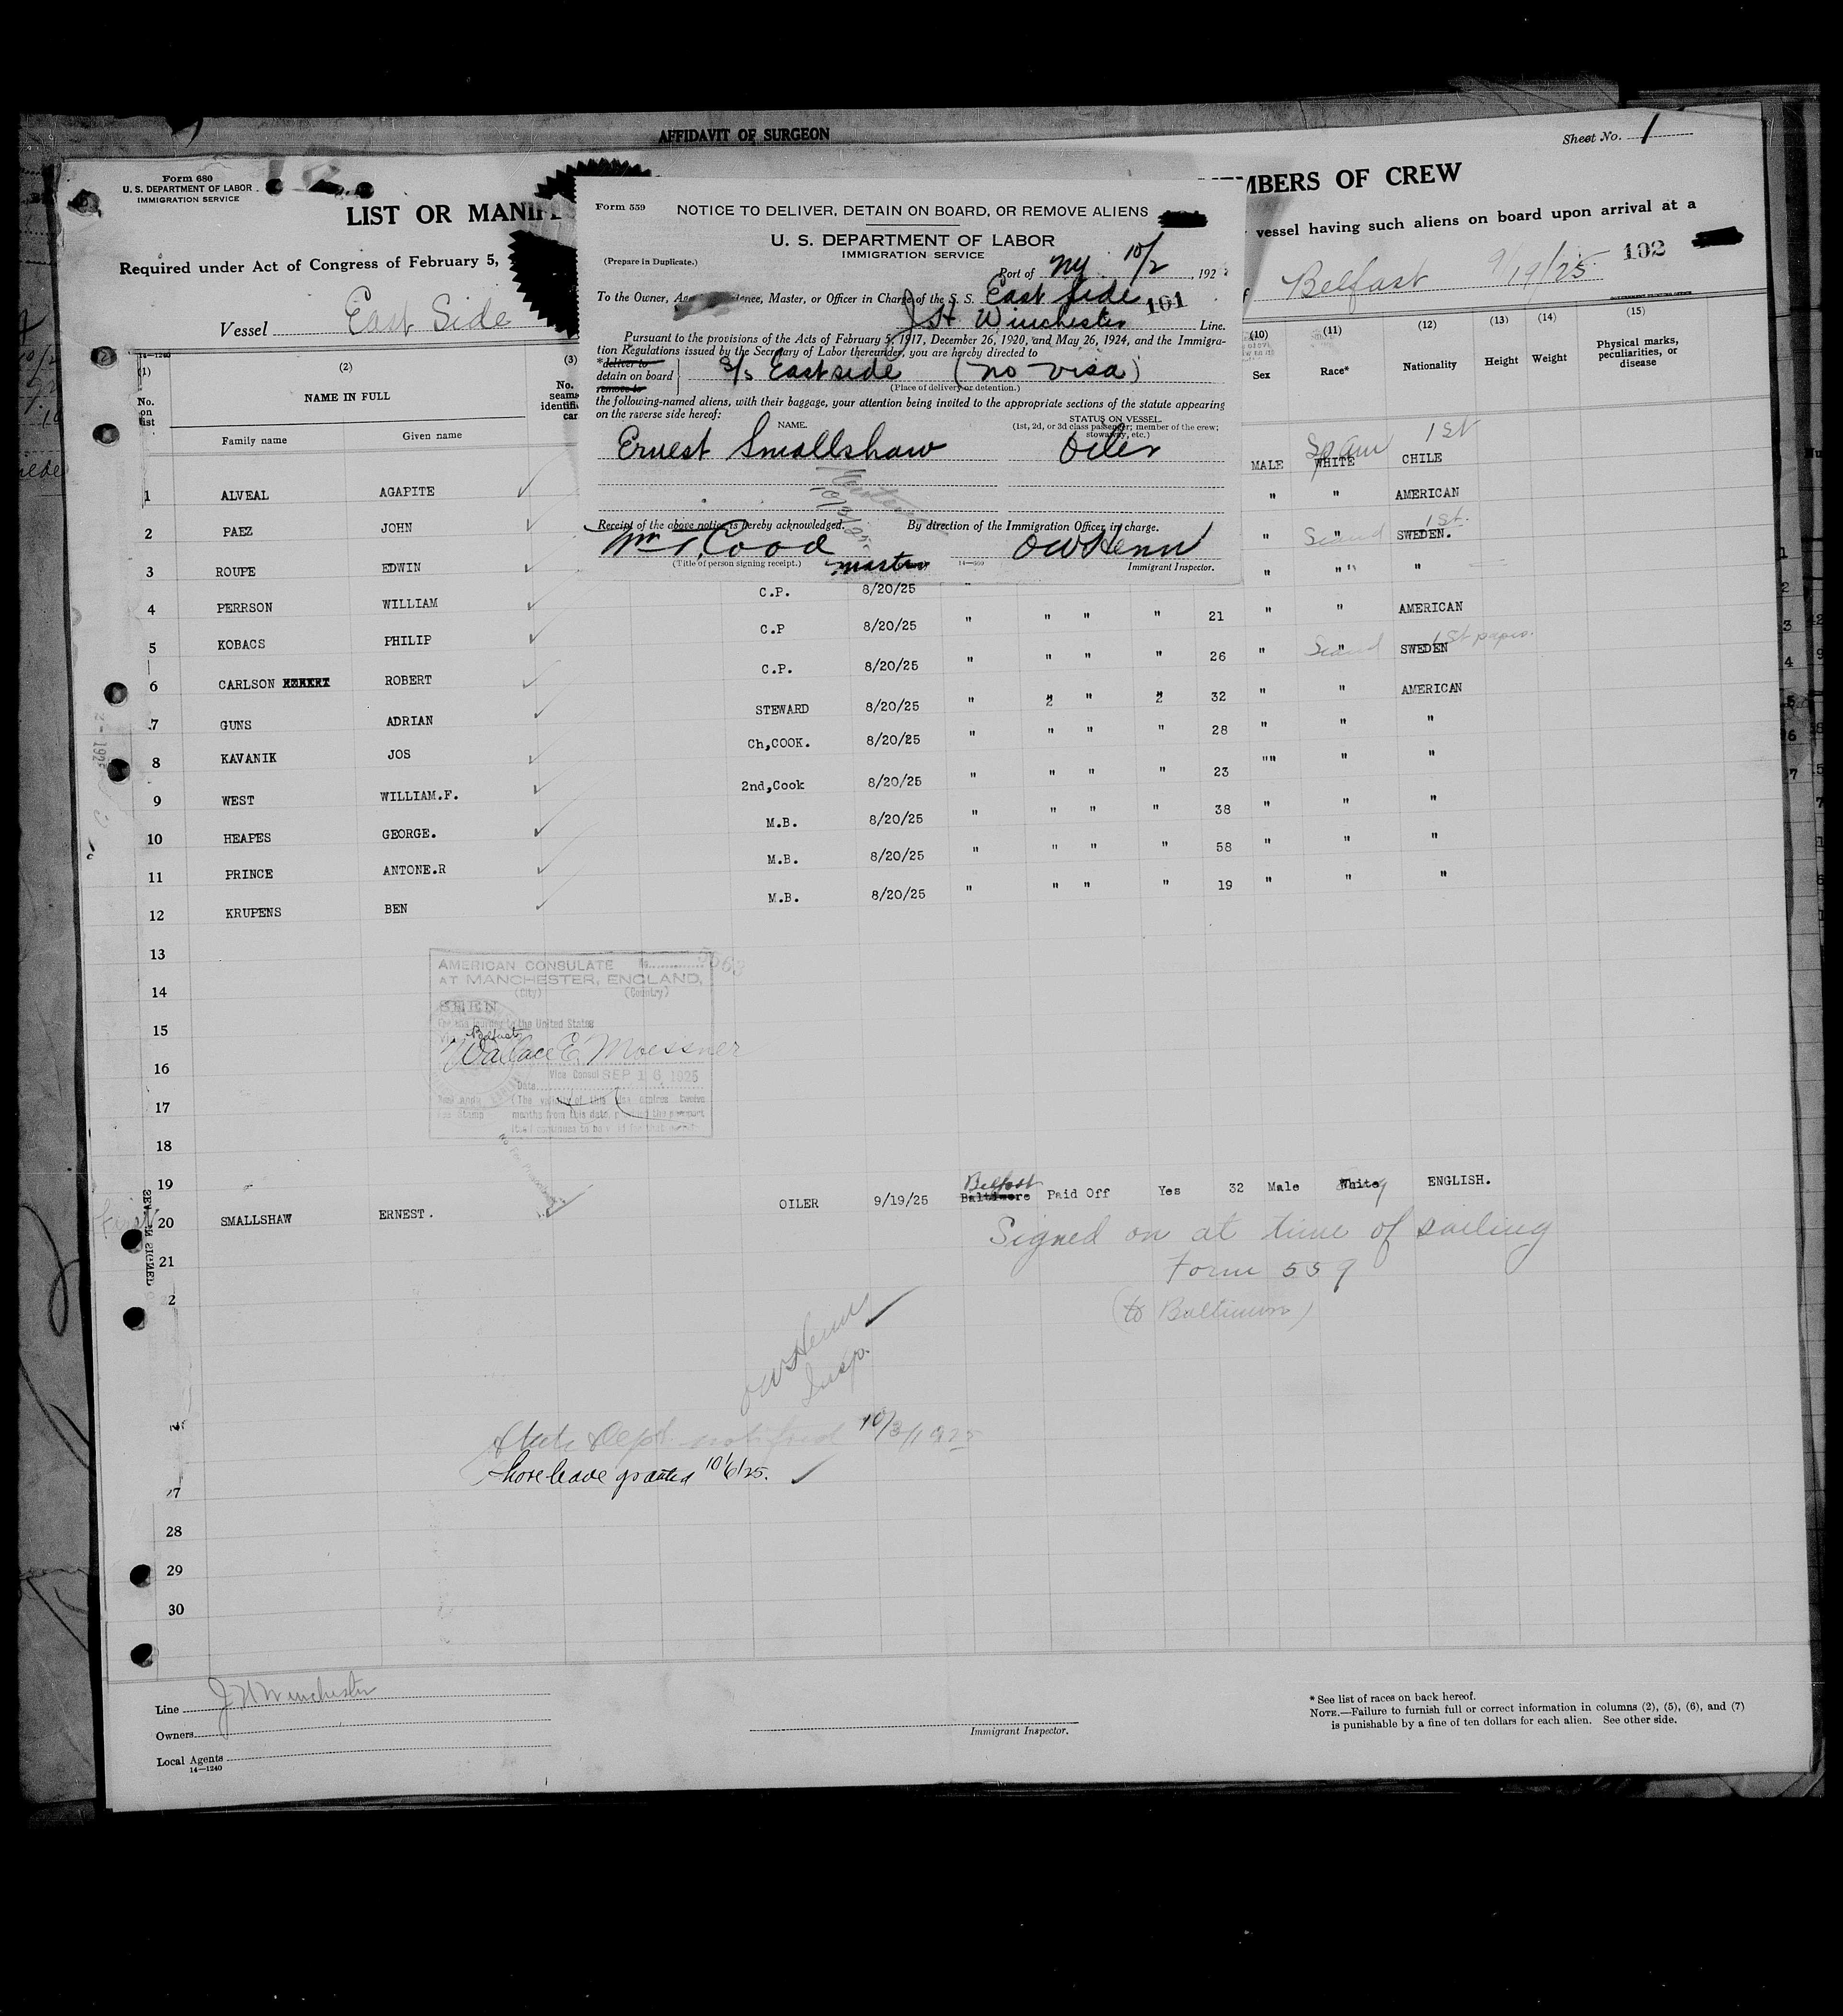 AFFIDAVIT OF SURGEON
Sheet No. 1
Form 680
U. S. DEPARTMENT OF LABOR
IMMIGRATION SERVICE
LIST OR MANIF
MBERS OF CREW
Required under Act of Congress of February 5,
vessel having such aliens on board upon arrival at a
Vessel East Side
Belfast 9/19/25 102
GOVERNMENT PRINTING OFFICE
Form 559
NOTICE TO DELIVER, DETAIN ON BOARD, OR REMOVE ALIENS
U. S. DEPARTMENT OF LABOR
IMMIGRATION SERVICE
(Prepare in Duplicate.)
Port of NY 10/2, 192
To the Owner, Master, or Officer in Charge of the S. S. East Side 101
J H Winchester Line.
Pursuant to the provisions of the Acts of February 5, 1917, December 26, 1920, and May 26, 1924, and the Immigra-
tion Regulations issued by the Secretary of Labor thereunder, you are hereby directed to
*deliver to
detain on board
remove to
S/s Eastside (no visa)
(Place of delivery or detention.)
the following-named aliens, with their baggage, your attention being invited to the appropriate sections of the statute appearing
on the reverse side hereof:
NAME.
STATUS ON VESSEL.
(1st, 2d, or 3d class passenger; member of the crew;
stowaway, etc.)
Ernest Smallshaw Oiler
Receipt of the above notice is hereby acknowledged.
By direction of the Immigration Officer in charge.
O W Henn
(Title of person signing receipt.) master
14—600
Immigrant Inspector.
14—1240
(1) (2) (3) (10) (11) (12) (13) (14) (15)
No. on list
NAME IN FULL
Family name Given name
No.
Sex Race* Nationality Height Weight Physical marks, peculiarities, or disease
1 ALVEAL AGAPITE MALE WHITE Sp Am CHILE 1st
2 PAEZ JOHN " " AMERICAN
3 ROUPE EDWIN " " Scand SWEDEN. 1st.
4 PERRSON WILLIAM C.P. 8/20/25 " " " "
5 KOBACS PHILIP C.P 8/20/25 " " " " 21 " " AMERICAN
6 CARLSON ROBERT C.P. 8/20/25 " " " " 26 " " Scand SWEDEN 1st papers.
7 GUNS ADRIAN STEWARD 8/20/25 " " " " 32 " " AMERICAN
8 KAVANIK JOS Ch,COOK. 8/20/25 " " " " 28 " " "
9 WEST WILLIAM.F. 2nd,Cook 8/20/25 " " " " 23 "" " "
10 HEAPES GEORGE. M.B. 8/20/25 " " " " 38 " " "
11 PRINCE ANTONE.R M.B. 8/20/25 " " " " 58 " " "
12 KRUPENS BEN M.B. 8/20/25 " " " " 19 " " "
13
14
15
16
17
18
19
AMERICAN CONSULATE No.
AT MANCHESTER, ENGLAND,
(City) (Country)
SEEN
For the journey to the United States
Via Belfast
Wallace E. Moessner
Vice Consul
Date SEP 16 1925
(The validity of this visa expires twelve
months from this date, provided the passport
20 SMALLSHAW ERNEST. OILER 9/19/25 Belfast Baltimore Paid Off Yes 32 Male White ENGLISH.
Signed on at time of sailing
21
Form 559
(to Baltimore)
O W Henn
Insp.
State Dept notified 10/3/1925
Shore leave granted 10/6/25.
28
29
30
Line J H Winchester
Owners
Local Agents
14—1240
Immigrant Inspector.
* See list of races on back hereof.
NOTE.—Failure to furnish full or correct information in columns (2), (5), (6), and (7)
is punishable by a fine of ten dollars for each alien. See other side.